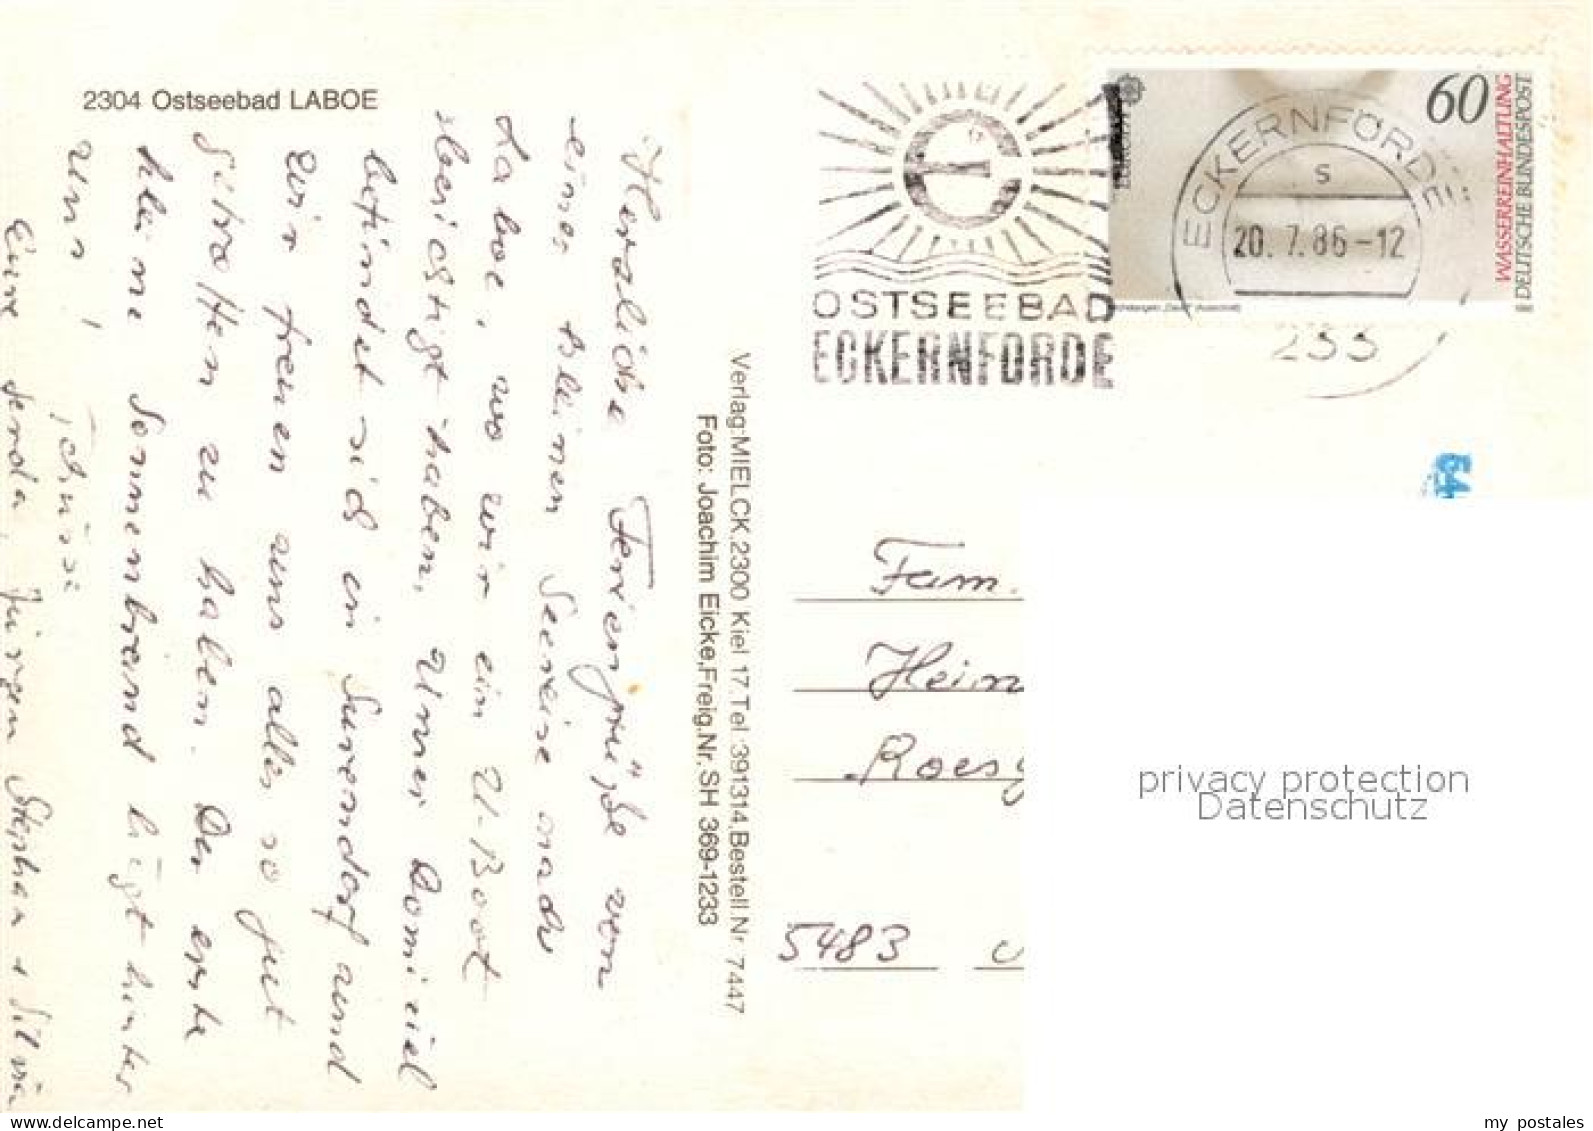 2304 Ostseebad LABOE
Herzliche Feriengrüße von
einer kleinen Seereise nach
Laboe, wo wir ein U-Boot
besichtigt haben. Unser Domiziel
befindet sich in Surendorf und
wir freuen uns alles so gut
getroffen zu haben. Der erste
kleine Sonnenbrand liegt hinter
uns!
Tschüssi
Eure Gerda, Jürgen Stephan + Silvia
Verlag:MIELCK,2300 Kiel 17.Tel.:391314,Bestell.Nr 7447
Foto: Joachim Eicke,Freig.Nr. SH 369-1233
OSTSEEBAD
ECKERNFÖRDE
EUROPA
60
WASSERREINHALTUNG
DEUTSCHE BUNDESPOST
ECKERNFÖRDE
s
20.7.86-12
233
64
Fam.
Hein
Roes
5483
privacy protection
Datenschutz
my postales